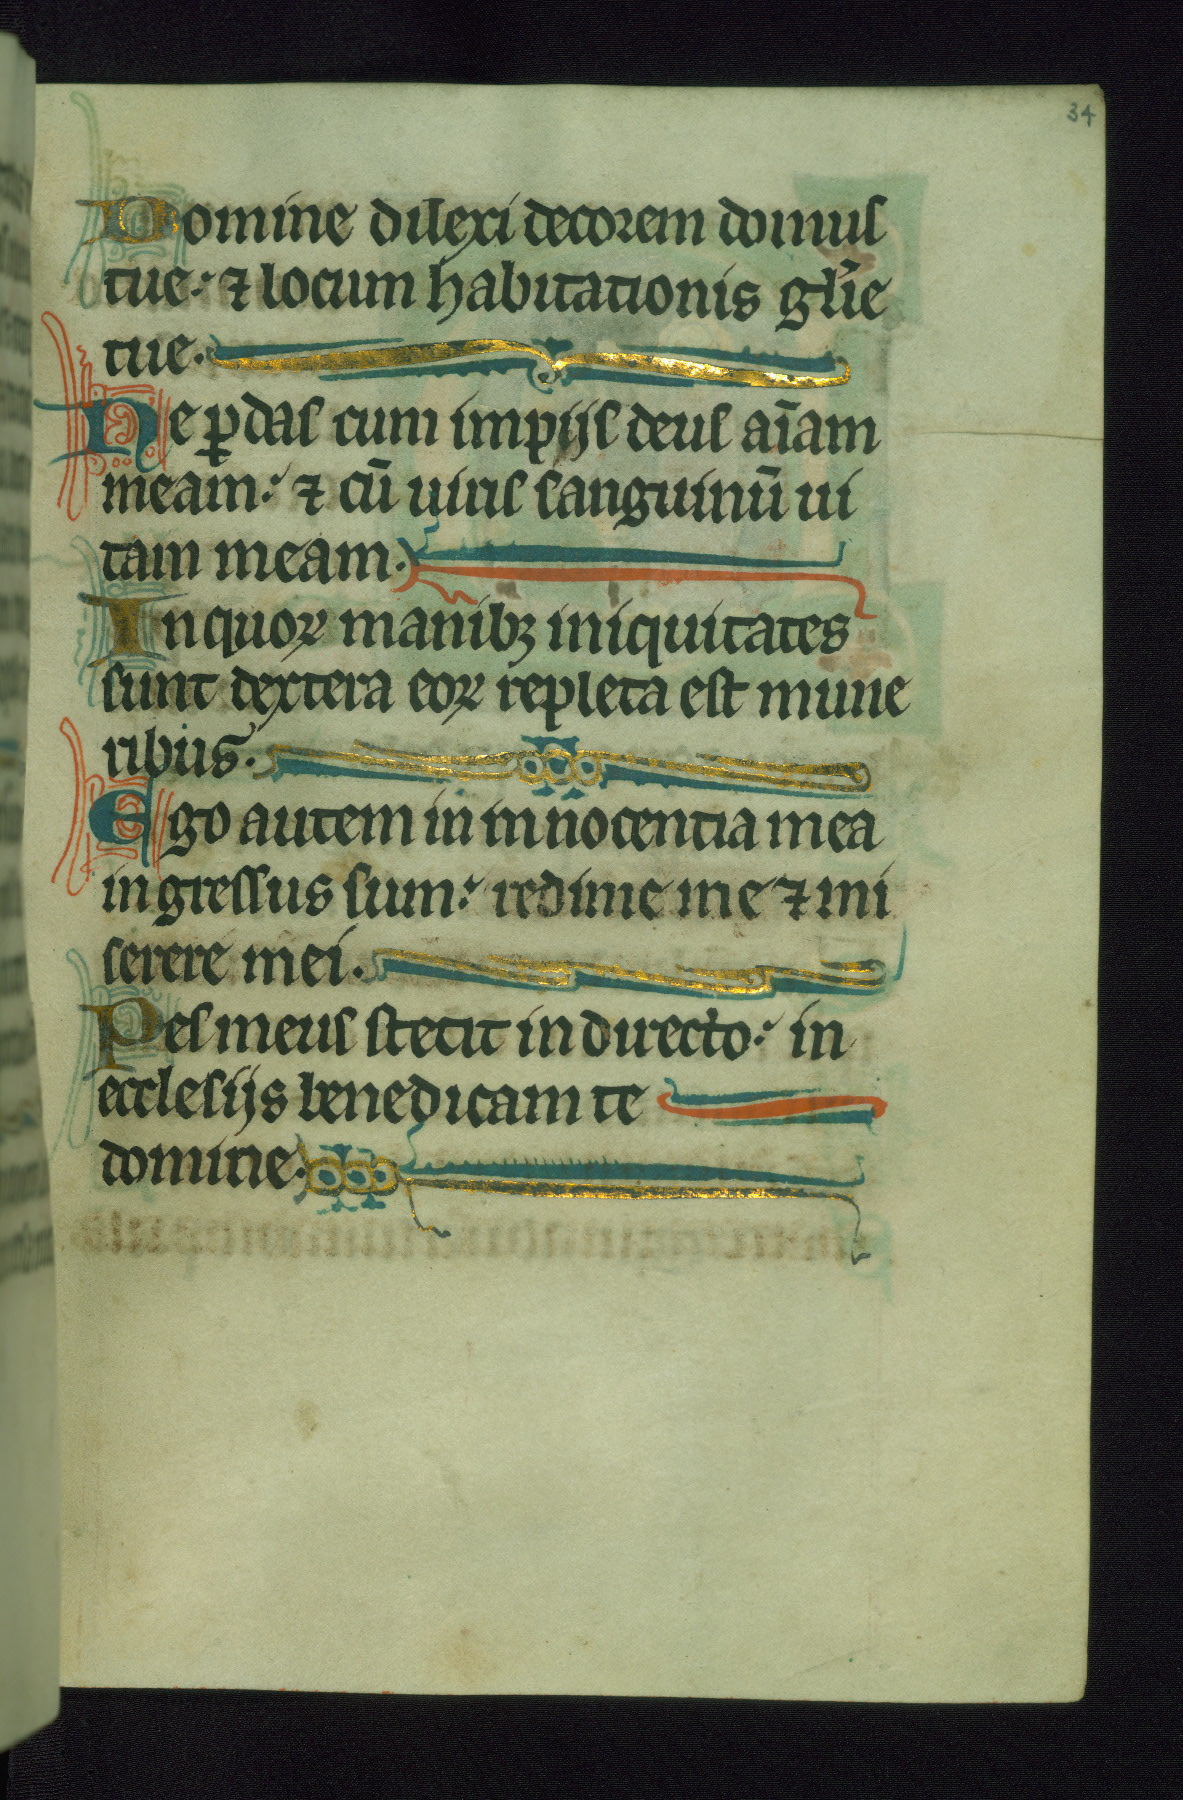 34
Domine dilexi decorem domus
tue: ⁊ locum habitationis gl̄ie
tue.
Ne ꝑdas cum impijs deus aīam
meam: ⁊ cū uiris sanguinū ui
tam meam.
In quoꝝ manibꝫ iniquitates
sunt dextera eoꝝ repleta est mune
ribus.
Ego autem in innocentia mea
ingressus sum: redime me ⁊ mi
serere mei.
Pes meus stetit in directo: in
ecclesijs benedicam te
domine.